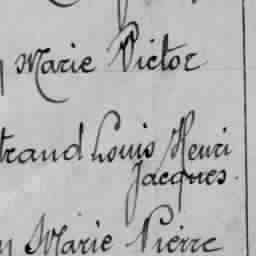 Marie Victor
trand Louis Henri
Jacques.
Marie Pierre